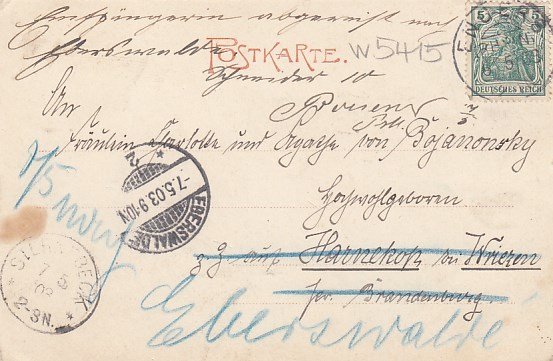 Empfängerin abgereist nach
Eberswalde.
POSTKARTE.
W 5415
Schneider 10
5
DEUTSCHES REICH
An
Fräulein Charlotte und Agathe von Bojanowsky
Hochwohlgeboren
z. Z. auf Harnekop bei Wriezen
Brandenburg.
EBERSWALDE
-7.5.03.9-10N.
2
7 5
03
2-3N.
Eberswalde